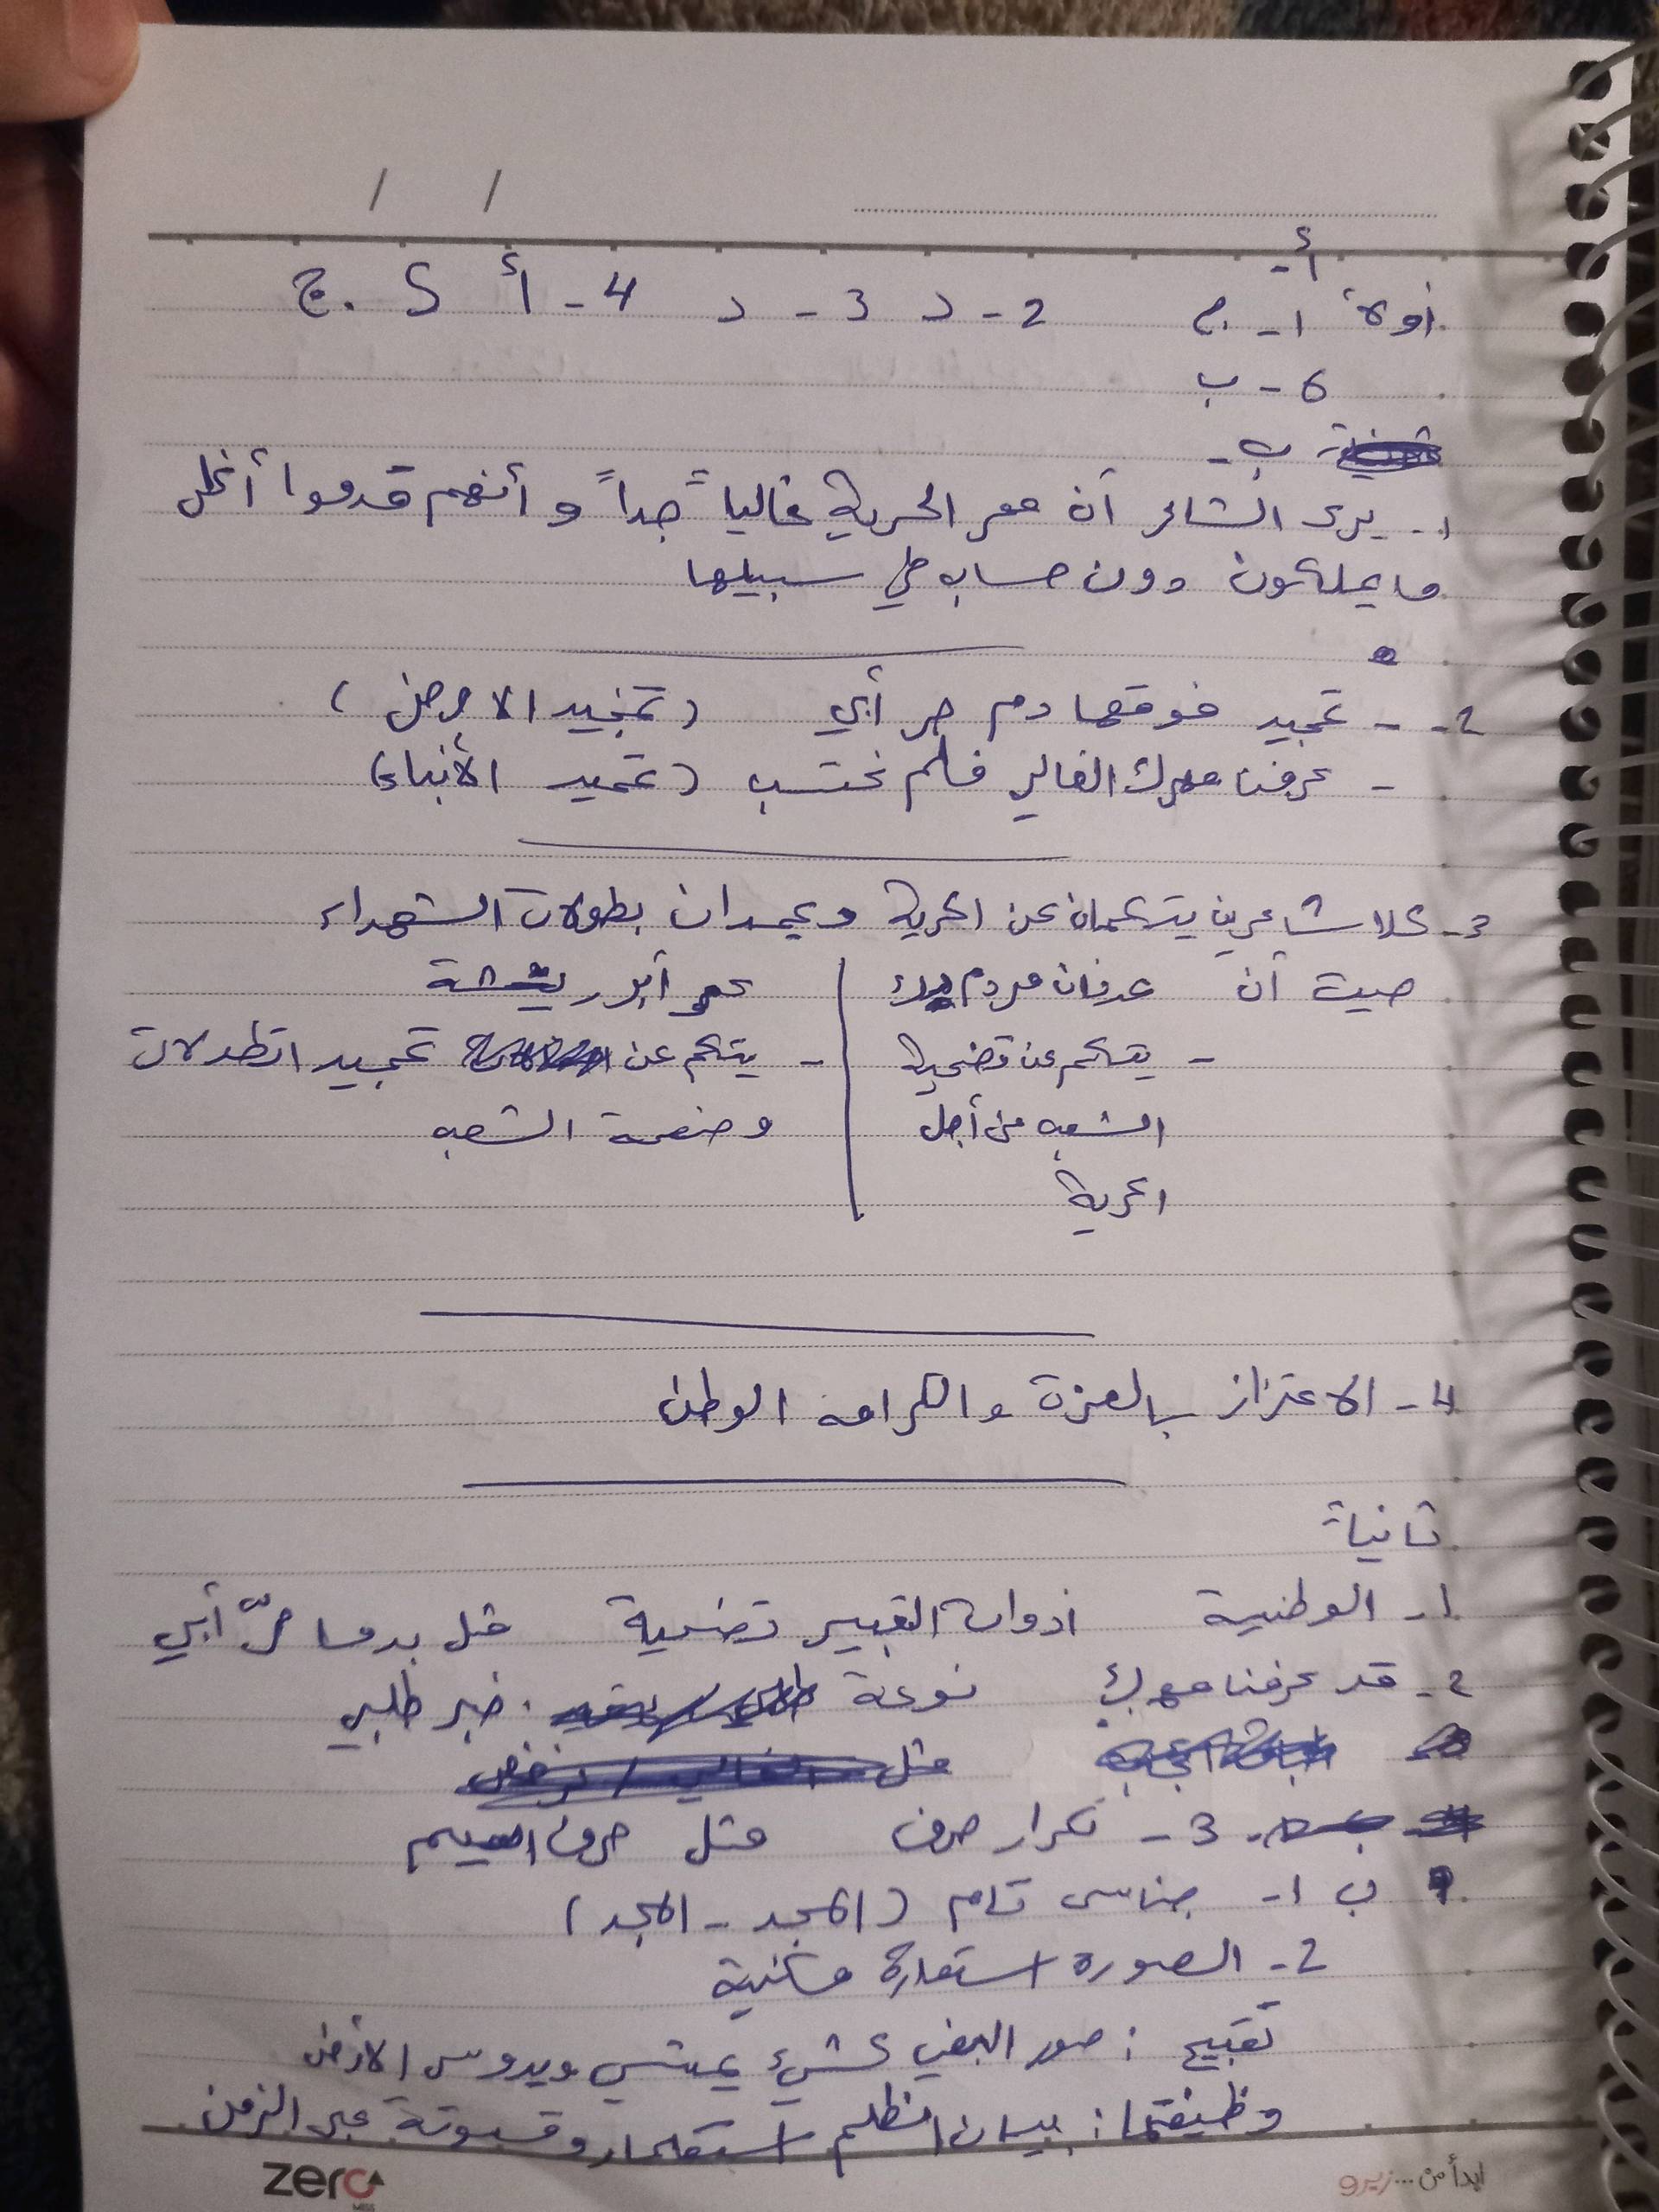 أ-
أولاً 1- ج 2- د 3- د 4- أ 5. ج
6- ب
ب-
1- يرى الشاعر أن مهر الحرية غالياً جداً و أنهم قدموا أغلى
ما يملكون دون حساب في سبيلها
2- - تمجيد فوقها دم حر أبي (تمجيد الارض)
- عرفنا مهرك الغالي فلم نحتسب (تمجيد الأنباء)
3- كلا شاعرين يتكلمان عن الحرية ويمجدان بطولات الشهداء
حيث أن عدنان مردم بك عمر أبو ريشة
- يتكلم عن تضحية - يتكلم عن تمجيد البطولات
الشعب من أجل وضعمة الشعب
الحرية
4- الاعتزاز بالعزة والكرامة الوطن
ثانياً
1- الوطنية ادوات التعبير تضحية مثل بدما حرّ أبي
2- قد عرفنا مهرك نوعة خبر طلبي
3- تكرار حرف مثل حرف الميم
ب 1- جناس تام (المجد - المجد)
2- الصورة استعارة مكنية
تقبيح : صور البغي كشيء يمشي ويدوس الأرض
وظيفتها : بيان الظلم استعمار وقسوتة عبر الزمن
zero
ابدأ من... زيرو